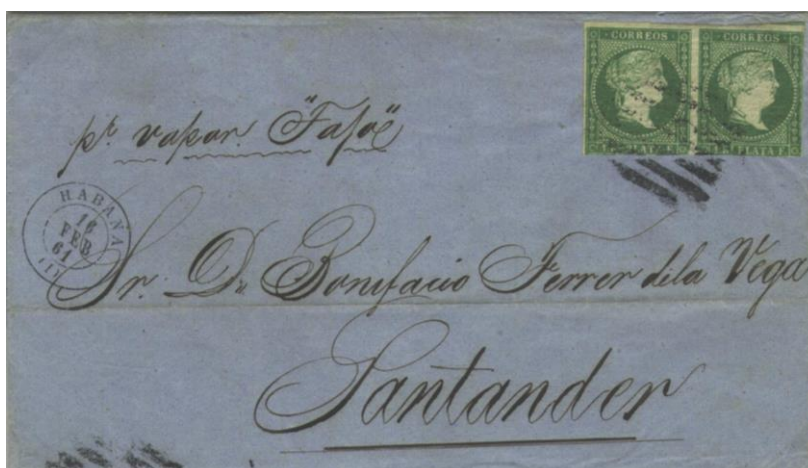 CORREOS CORREOS
PLATA F. PLATA F.
pr. vapor
HABANA
16
FEB
61
(1)
Sr. Dn. Bonifacio Ferrer de la Vega
Santander